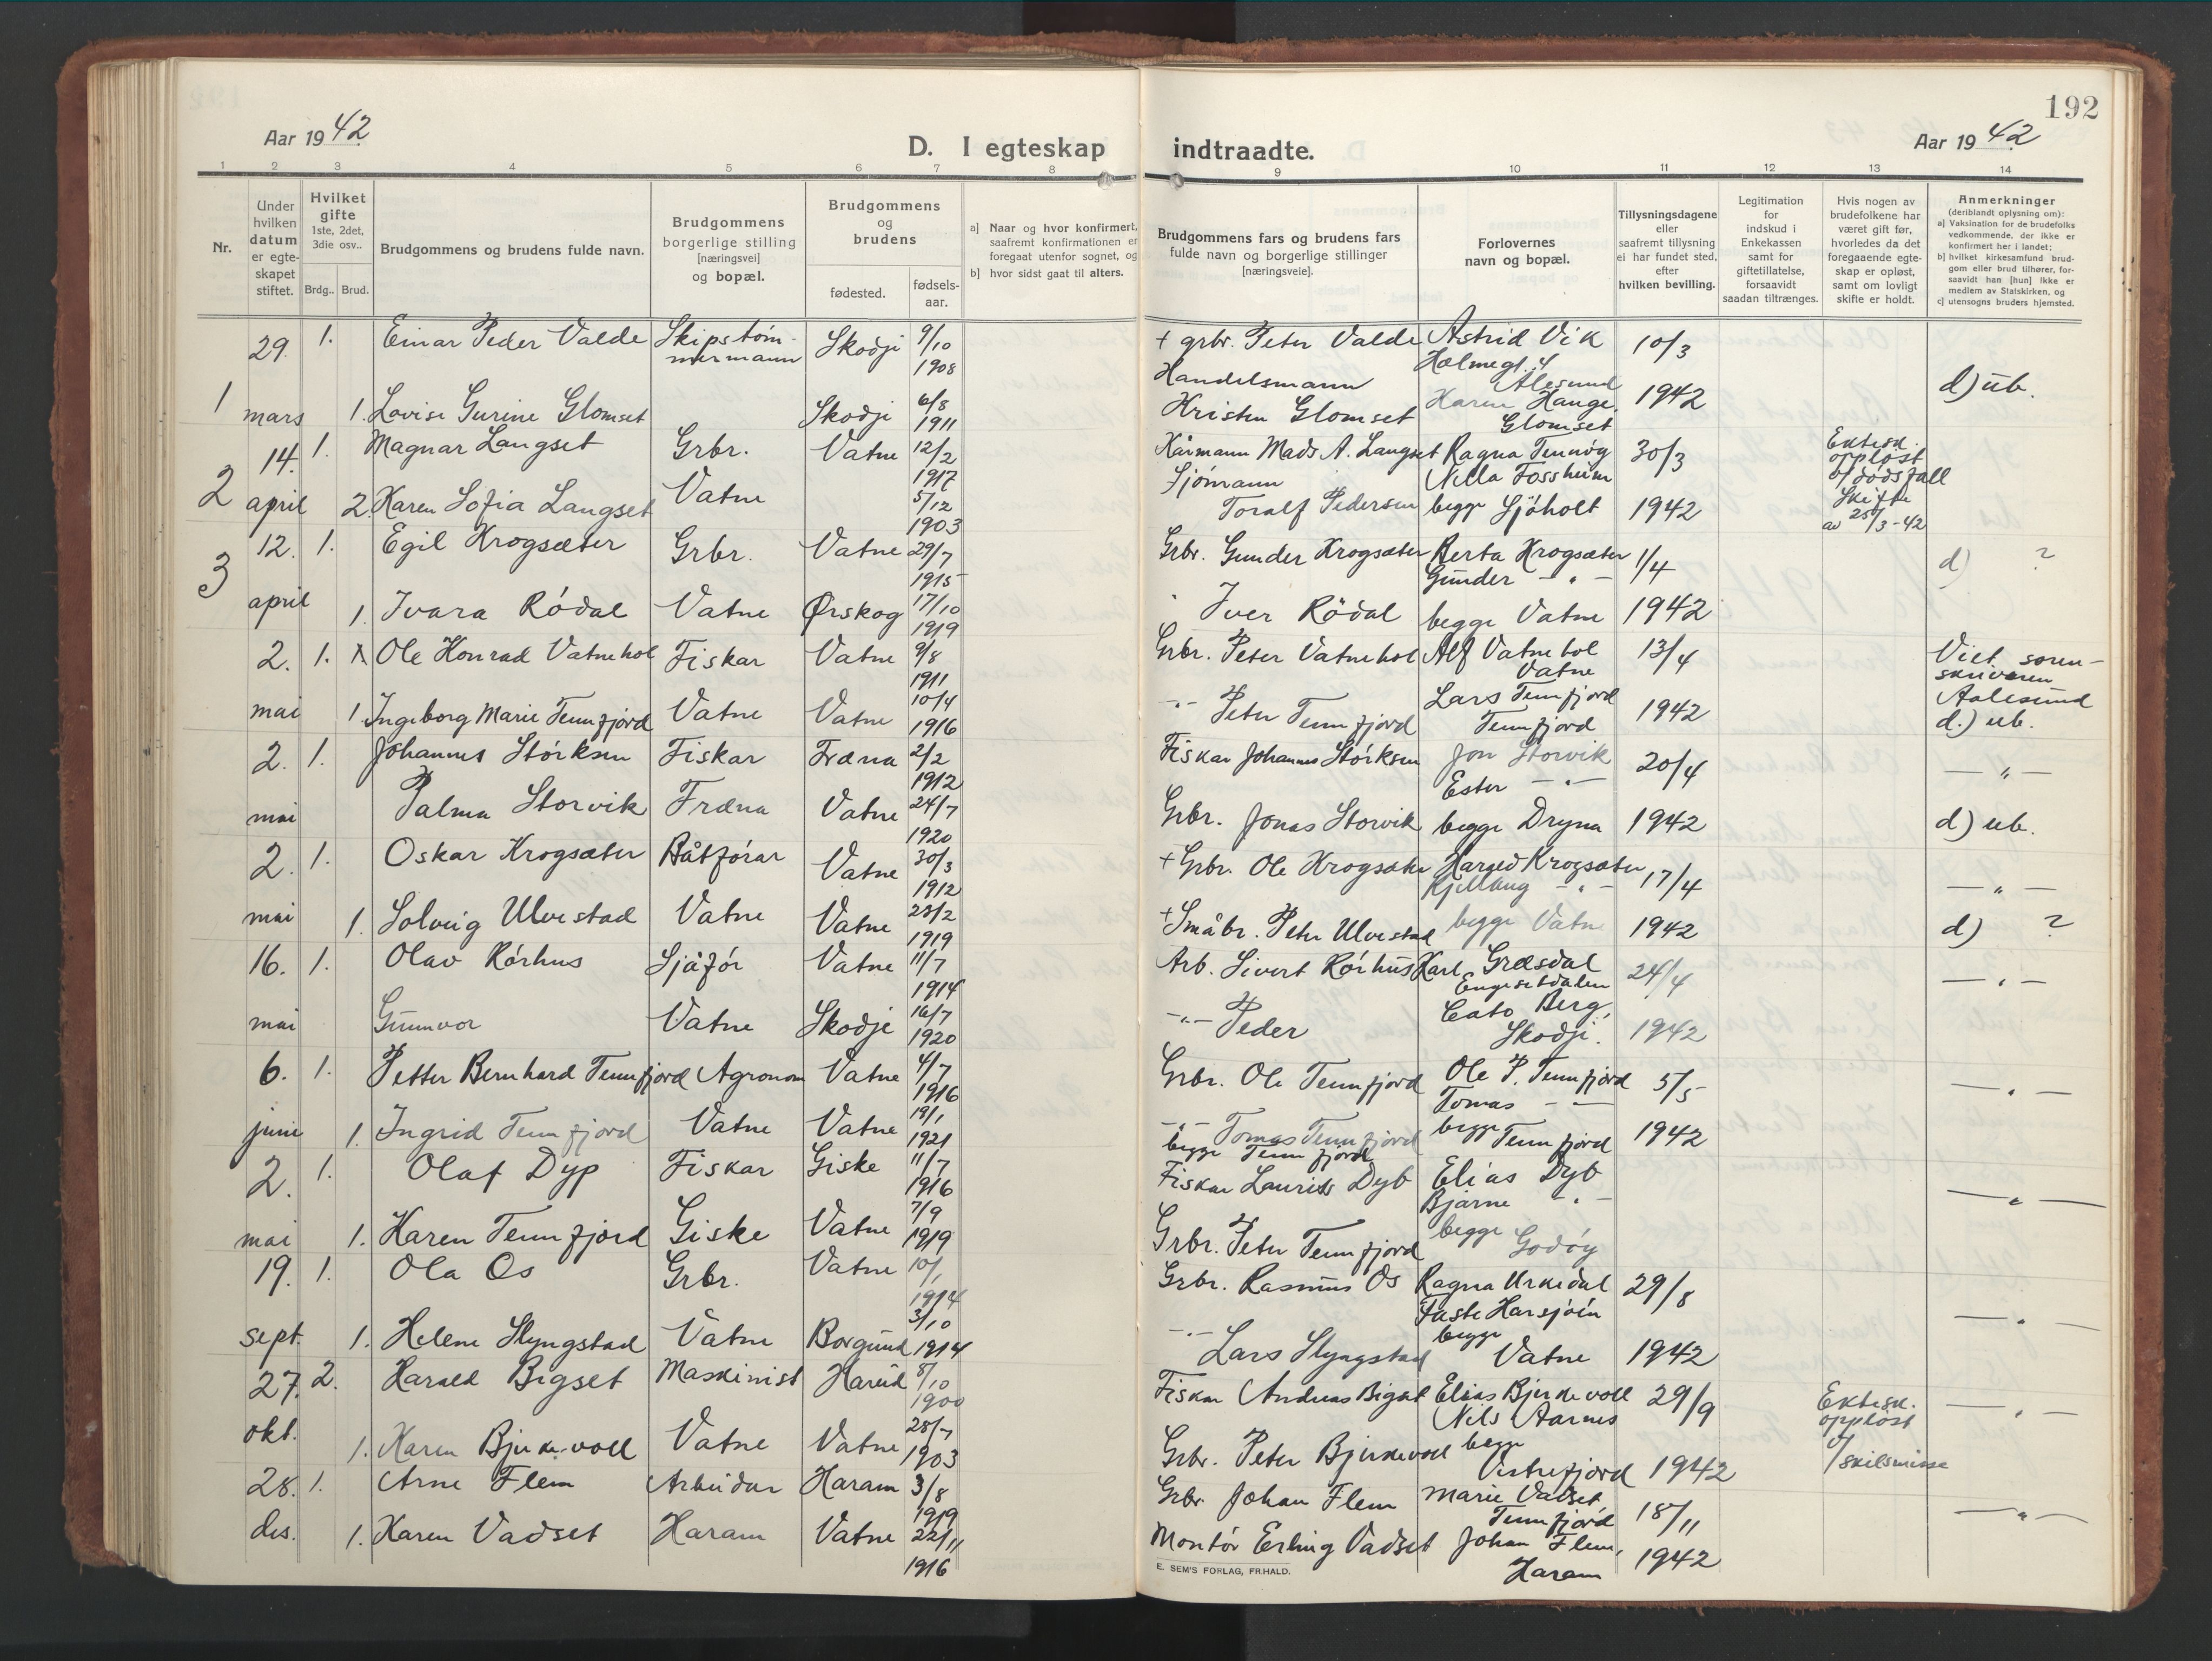 192
Aar 1942
D. I egteskap indtraadte.
Aar 1942
1 2 3 4 5 6 7 8 9 10 11 12 13 14
Nr.
Under hvilken datum er egte-skapet stiftet.
Hvilket gifte 1ste, 2det, 3die osv..
Brdg.. Brud.
Brudgommens og brudens fulde navn.
Brudgommens borgerlige stilling [næringsvei] og bopæl.
Brudgommens og brudens
fødested.
fødsels-aar.
a] Naar og hvor konfirmert, saafremt konfirmationen er foregaat utenfor sognet, og
b] hvor sidst gaat til alters.
Brudgommens fars og brudens fars fulde navn og borgerlige stillinger [næringsveie].
Forlovernes navn og bopæl.
Tillysningsdagene eller saafremt tillysning ei har fundet sted, efter hvilken bevilling.
Legitimation for indskud i Enkekassen samt for giftetillatelse, forsaavidt saadan tiltrænges.
Hvis nogen av brudefolkene har været gift før, hvorledes da det foregaaende egte-skap er opløst, samt om lovligt skifte er holdt.
Anmerkninger (deriblandt oplysning om):
a) Vaksination for de brudefolks vedkommende, der ikke er konfirmert her i landet;
b) hvilket kirkesamfund brud-gom eller brud tilhører, for-saavidt han [hun] ikke er medlem av Statskirken, og
c) utensogns bruders hjemsted.
29. 1. Einar Peder Valde Skipstøm-mermann Skodje 9/10 1908 + grbr. Peter Valde Astrid Vik Holmegt. 4 Ålesund 10/3
1 mars 1. Lovise Gurine Glomset Skodje 6/8 1911 Handelsmann Kristen Glomset Karen Hauge, Glomset 1942 d) ub.
14. 1. Magnar Langset Grbr. Vatne 12/2 1917 Kårmann Mads A. Langset Ragna Tennøy Nilla Fossheim 30/3 Ektesk. oppløst v/dødsfall
2 april 2. Karen Sofia Langset Vatne 5/12 1903 Sjømann Toralf Pedersen begge Sjöholt 1942 Skifte av 25/3-42
12. 1. Egil Krogsæter Grbr. Vatne 29/7 1915 Grbr. Gunder Krogsæter Berta Krogsæter Gunder - " - 1/4 d) ?
3 april 1. Ivara Rødal Vatne Ørskog 17/10 1919 Iver Rödal begge Vatne 1942
2. 1. Ole Konrad Vatnehol Fiskar Vatne 9/8 1911 Grbr. Peter Vatnehol Alf Vatnehol Vatne 13/4 Viet soren-skrivaren
mai 1. Ingeborg Marie Tennfjord Vatne Vatne 10/4 1916 - " - Peter Tennfjord Lars Tennfjord Tennfjord 1942 Aalesund d.) ub.
2. 1. Johannes Størksen Fiskar Fræna 2/2 1912 Fiskar Johannes Størksen Jon Storvik Ester - " - 20/4 - " -
mai Palma Storvik Fræna Vatne 24/7 1920 Grbr. Jonas Storvik begge Dryna 1942 d) ub.
2. 1. Oskar Krogsæter Båtförar Vatne 30/3 1912 + Grbr. Ole Krogsæter Krogsæter Kjellaug - " - 17/4 - " -
mai 1. Solveig Ulvestad Vatne Vatne 23/2 1919 + Småbr. Peter Ulvestad begge Vatne 1942 d) ?
16. 1. Olav Rørhus Sjåfør Vatne 11/7 1914 Arb. Sivert Rørhus Karl Græsdal Engesetdalen 24/4 - " -
mai Gunnvor Vatne Skodje 16/7 1920 - " - Peder Cato Berg, Skodje. 1942
6. 1. Petter Bernhard Tennfjord Agronom Vatne 4/7 1916 Grbr. Ole Tennfjord Ole P. Tennfjord Tomas - " - 5/5 - " -
juni 1. Ingrid Tennfjord Vatne Vatne 19/1 1921 - " - Tomas Tennfjord begge Tennfjord begge Tennfjord 1942
2. 1. Olaf Dyp Fiskar Giske 11/7 1916 Fiskar Laurits Dyb Elias Dyb Bjarne - " - - " -
mai 1. Karen Tennfjord Giske Vatne 7/9 1919 Grbr. Peter Tennfjord begge Godøy
19. 1. Ola Os Grbr. Vatne 10/1 1914 Grbr. Rasmus Os Ragna Urkedal Faste Harsjøen 29/8 - " -
sept. 1. Helene Slyngstad Vatne Borgund 3/10 1914 - " - Lars Slyngstad begge Vatne 1942
27. 2. Harald Bigset Maskinist Hareid 8/10 1900 Fiskar Andreas Bigset Elias Bjerkevoll Nils Aarnes 29/9 Ektesk. oppløst v/skilsmisse - " -
okt. 1. Karen Bjerkevoll Vatne Vatne 28/7 1903 Grbr. Peter Bjerkevoll begge Vestrefjord 1942
28. 1. Arne Flem Arbeidar Haram 3/8 1919 Grbr. Johan Flem Marie Vadset, Tennfjord 18/11 - " -
des. 1. Karen Vadset Haram Vatne 22/11 1916 Montør Erling Vadset Johan Flem, Haram 1942
E. SEM'S FORLAG, FR.HALD.